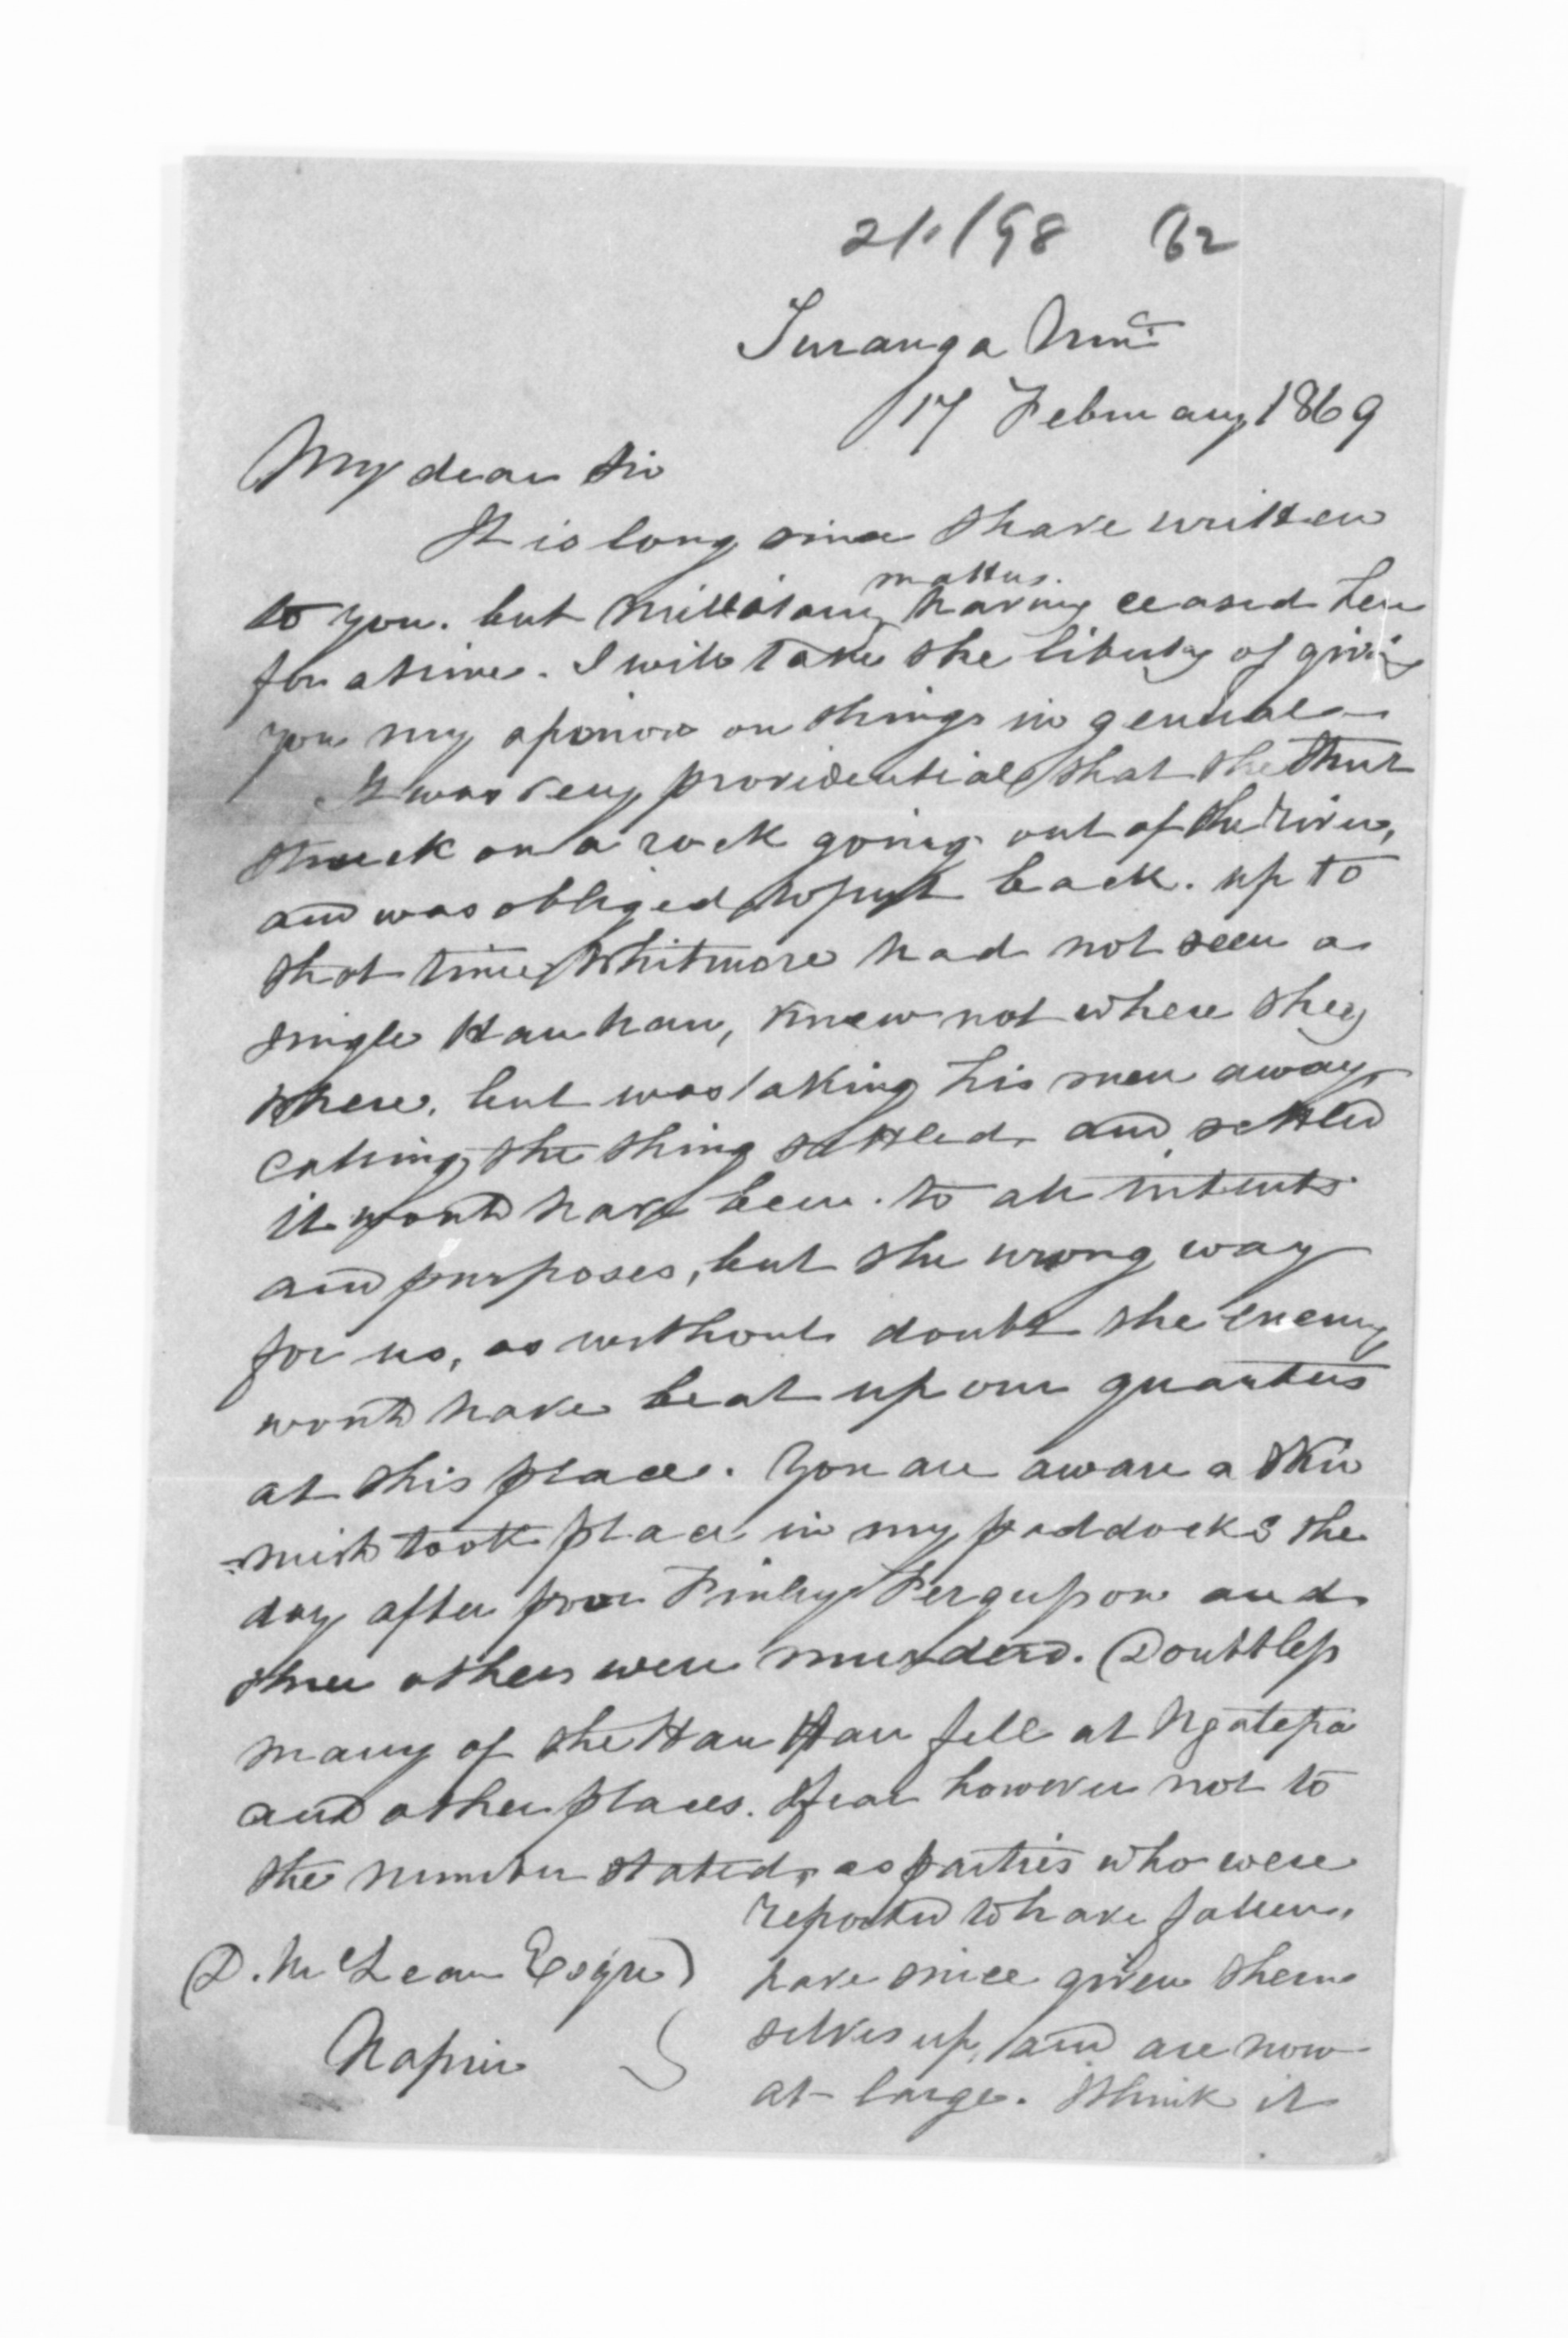 21/198 62
Turanga Nui
17 February 1869
My dear Sir
It is long since I have written
matters.
to you. but Millitary having ceased her
for a time. I will take the liberty of giving
you my opinion on things in general
It was very providential that the Sturt
struck on a rock going out of the river,
and was obliged to put back. up to
that time Whitmore had not seen a
single Hau hau, knew not where they
where. but was taking his men away
calling the thing settled, and settled
it would have been. to all intents
and purposes, but the wrong way
for us, as without doubt the enemy
would have beat up our quarters
at this place. You are aware a Skir
=mish took place in my paddocks the
day after poor Finlay Fergusson and
three others were murderd. Doubtless
many of the Hau Hau fell at Ngatapa
and other places. I fear however not to
the number stated, as parties who were
reported to have fallen,
have since given them
selves up, and are now
at large. I think it
D. McLean Esqre
Napier